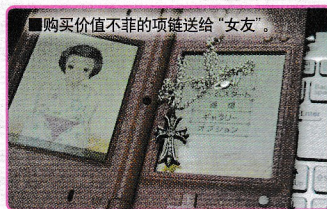 ■购买价值不菲的项链送给“女友”。
ギャラリー
オプション